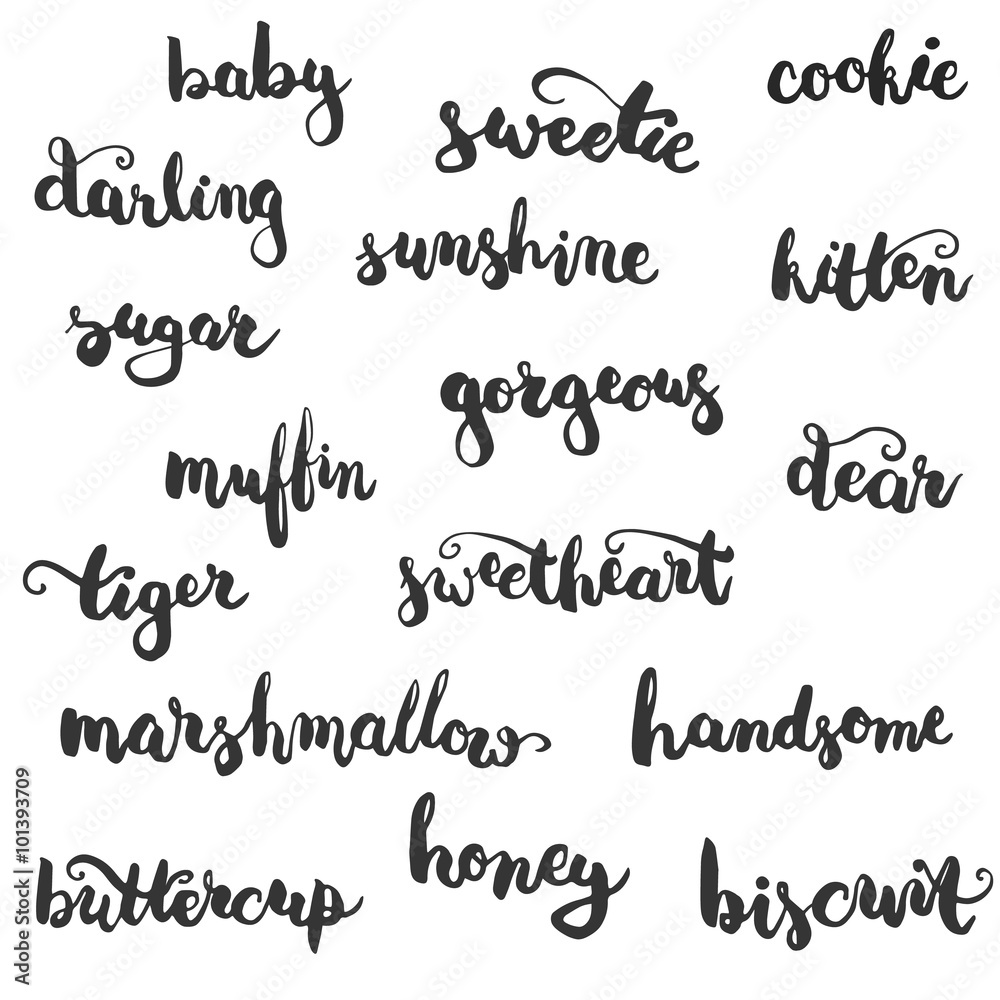 baby
cookie
sweetie
darling
sunshine
kitten
sugar
gorgeous
muffin
dear
tiger
sweetheart
marshmallow
handsome
honey
buttercup
biscuit
Adobe Stock | #101393709